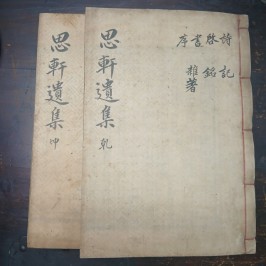 思軒遺集 乾
詩 啓 書 序
記 銘 雜著
思軒遺集 坤